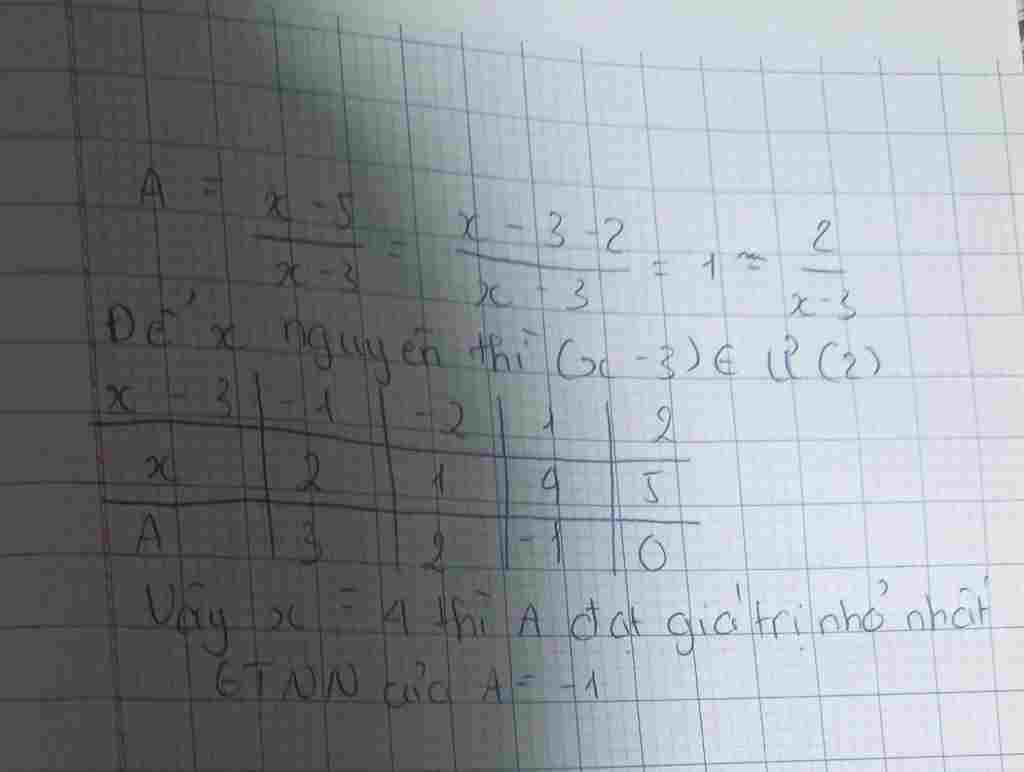 A = x - 5 / x - 3 = x - 3 - 2 / x - 3 = 1 - 2 / x - 3
Để x nguyên thì (x - 3) ∈ Ư (2)
x - 3 | -1 | -2 | 1 | 2
x | 2 | 1 | 4 | 5
A | 3 | 2 | -1 | 0
Vậy x = 4 thì A đạt giá trị nhỏ nhất
GTNN của A = -1